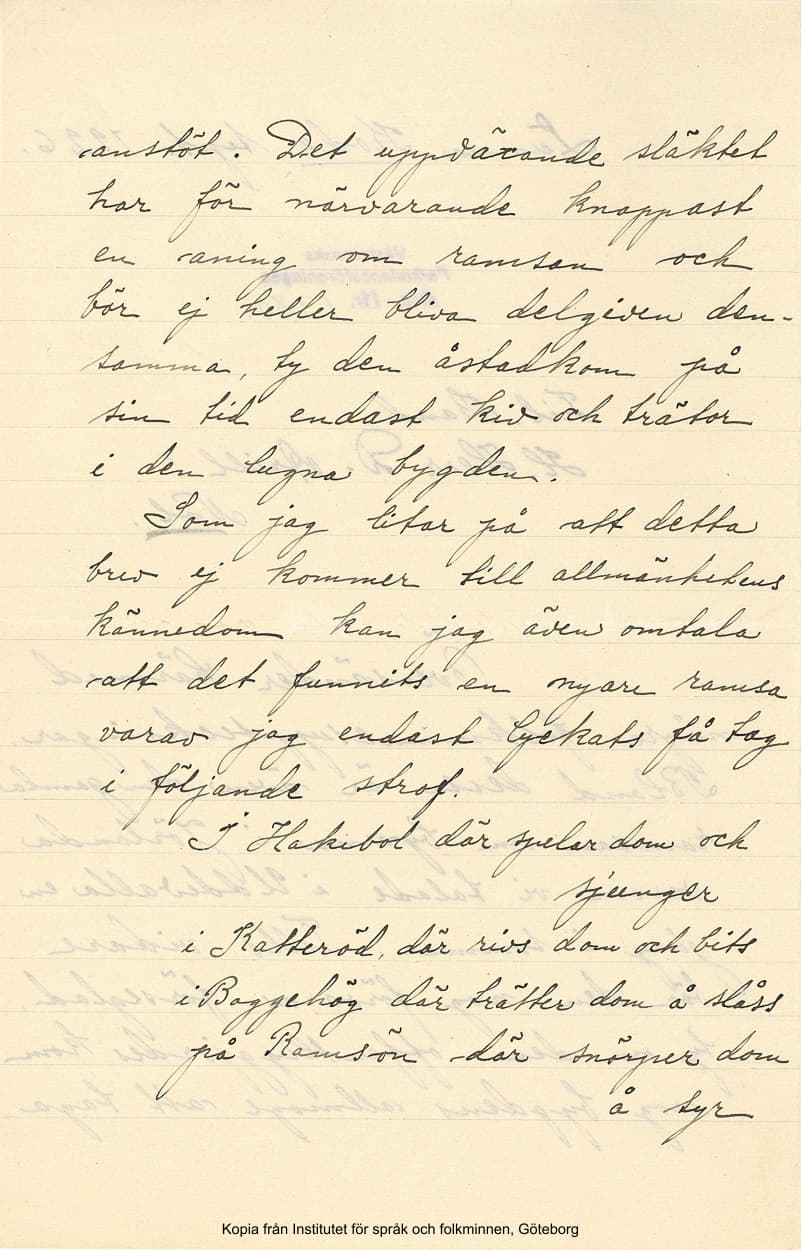 anstöt. Det uppväxande släktet
har för närvarande knappast
en aning om ramsan och
bör ej heller bliva delgiven den-
samma, ty den åstadkom på
sin tid endast kiv och trätor
i den lugna bygden.
Som jag litar på att detta
brev ej kommer till allmänhetens
kännedom kan jag även omtala
att det funnits en nyare ramsa
varav jag endast lyckats få tag
i följande strof.
I Hakebol där spelar dom och
sjunger
i Katteröd, där rivs dom och bits
i Baggehög där trätter dom å slåss
på Ramsön där snörper dom
å syr
Kopia från Institutet för språk och folkminnen, Göteborg